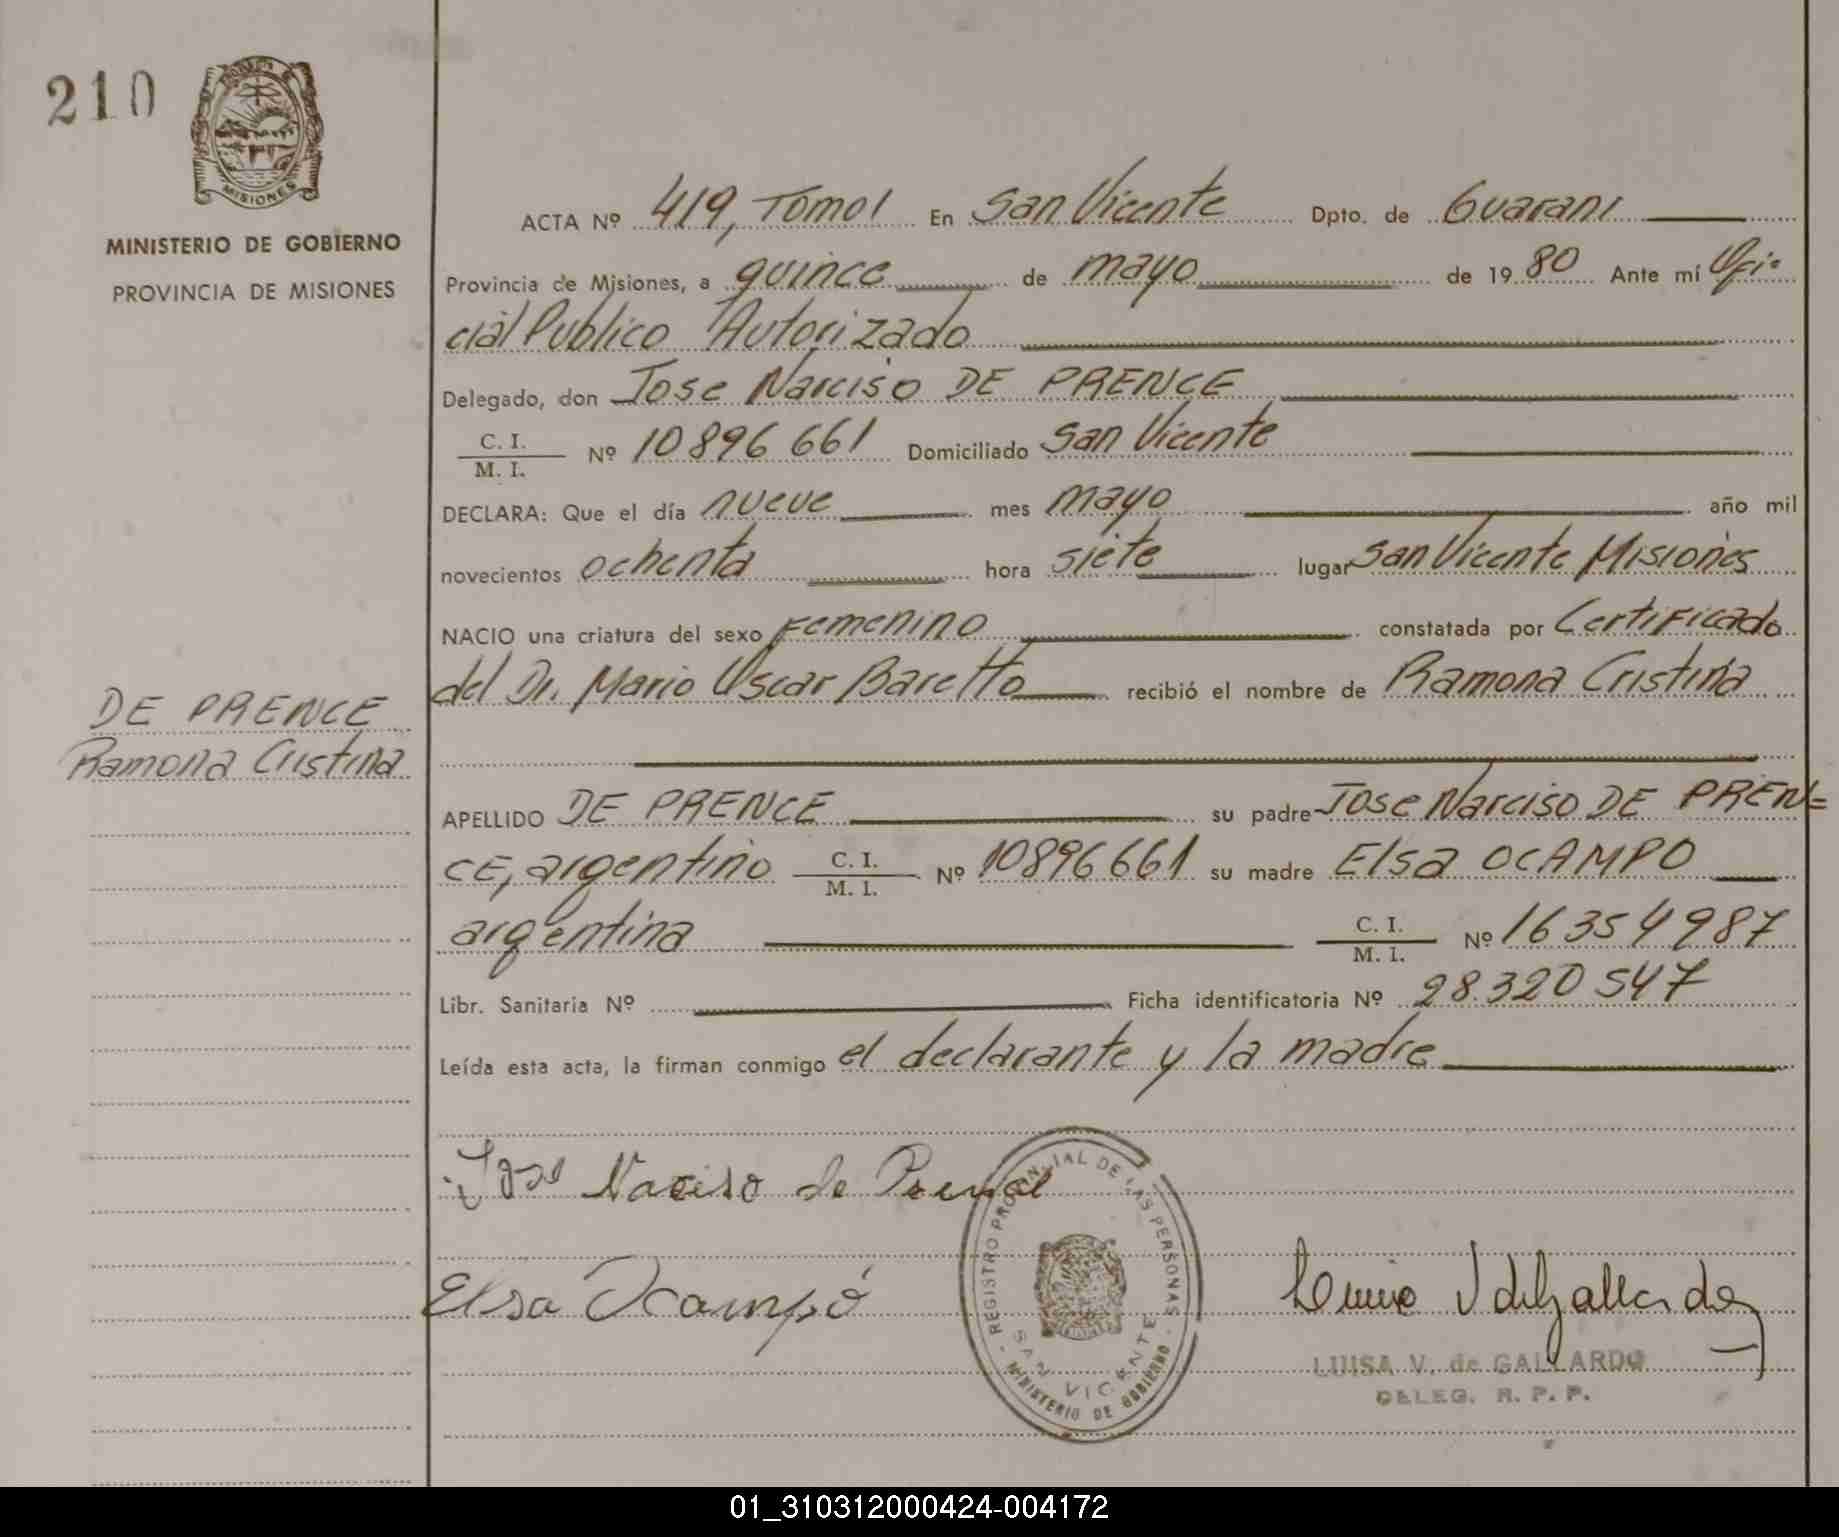 210
MISIONES
MINISTERIO DE GOBIERNO
PROVINCIA DE MISIONES
DE PRENCE
Ramona Cristina
ACTA Nº 419, Tomo I En San Vicente Dpto. de Guarani
Provincia de Misiones, a quince de mayo de 1980 Ante mí Ofi-
cial Publico Autorizado
Delegado, don Jose Narciso DE PRENCE
C. I. / M. I. Nº 10896 661 Domiciliado San Vicente
DECLARA: Que el día nueve mes mayo año mil
novecientos ochenta hora siete lugar San Vicente Misiones
NACIO una criatura del sexo Femenino constatada por Certificado
del Dr. Mario Oscar Baretto recibió el nombre de Ramona Cristina
APELLIDO DE PRENCE su padre Jose Narciso DE PREN=
CE, argentino C. I. / M. I. Nº 10896661 su madre Elsa OCAMPO
argentina C. I. / M. I. Nº 16354987
Libr. Sanitaria Nº Ficha identificatoria Nº 28.320547
Leída esta acta, la firman conmigo el declarante y la madre
Jose Narciso de Prence
Elsa Ocampó
REGISTRO PROVINCIAL DE LAS PERSONAS
SAN VICENTE
MINISTERIO DE GOBIERNO
LUISA V. de GALLARDO
DELEG. R. P. P.
01_310312000424-004172